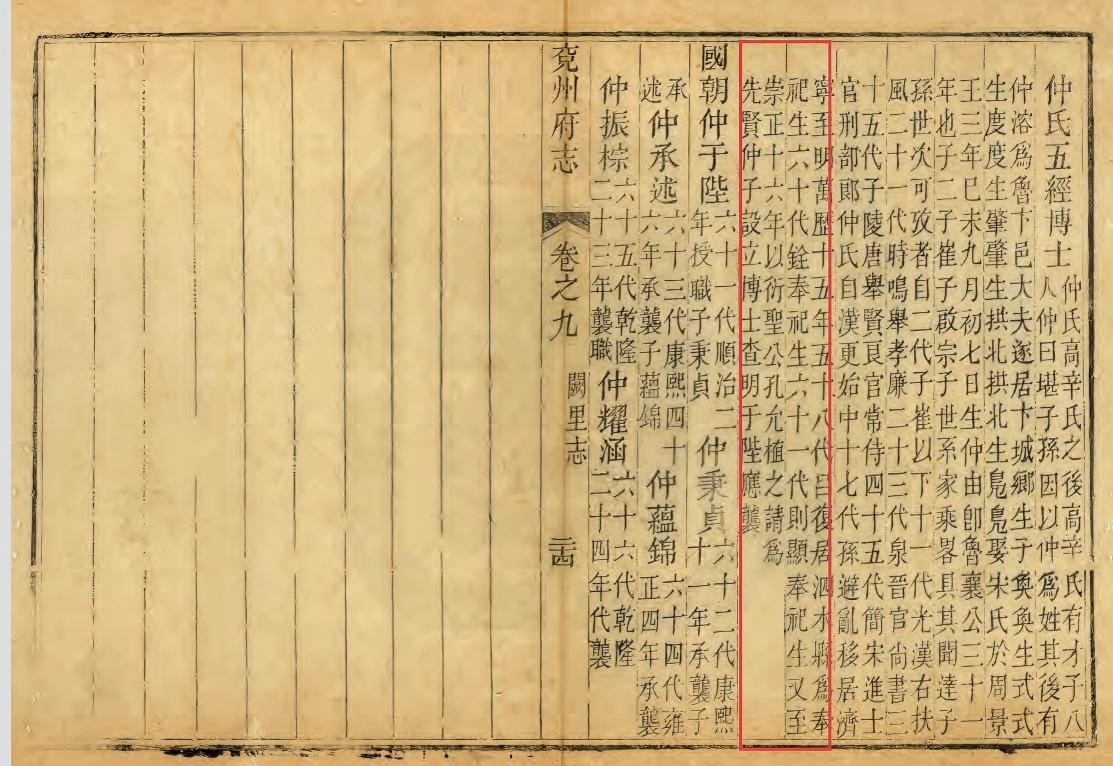 仲氏五經博士
仲氏高辛氏之後高辛氏有才子八
人仲曰堪子孫因以仲爲姓其後有
仲溶爲魯卞邑大夫遂居卞城鄉生子奐奐生式式
生度度生肇肇生拱北拱北生鳧鳧娶宋氏於周景
王三年己未九月初七日生仲由卽魯襄公三十一
年也子二子崔子啟宗子世系家乘畧具其聞達子
孫世次可攷者自二代子崔以下十一代光漢右扶
風二十一代時鳴舉孝廉二十三代泉晉官尚書三
十五代子陵唐舉賢良官常侍四十五代簡宋進士
官刑部郎仲氏自漢更始中十七代孫避亂移居濟
寧至明萬歷十五年五十八代呂復居泗水縣爲奉
祀生六十代銓奉祀生六十一代則顯奉祀生又至
崇正十六年以衍聖公孔允植之請爲
先賢仲子設立博士查明于陛應襲
國朝仲于陛
六十一代順治二
年授職子秉貞
仲秉貞
六十二代康熙
十一年承襲子
承
述
仲承述
六十三代康熙四十
六年承襲子蘊錦
仲蘊錦
六十四代雍
正四年承襲
仲振棕
六十五代乾隆
二十三年襲職
仲耀涵
六十六代乾隆
二十四年代襲
兗州府志
卷之九
闕里志
二十四